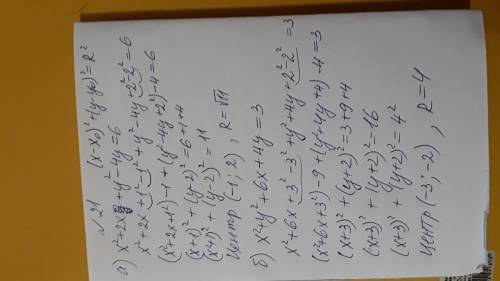 № 21 (x-x₀)²+(y-y₀)²=R²
а) x²+2x+y²-4y=6
x²+2x+1²-1²+y²-4y+2²-2²=6
(x²+2x+1²)-1+(y²-4y+2²)-4=6
(x+1)²+(y-2)²=6+1+4
(x+1)²+(y-2)²=11
Центр (-1; 2), R=√11
б) x²+y²+6x+4y=3
x²+6x+3²-3²+y²+4y+2²-2²=3
(x²+6x+3²)-9+(y²+4y+4)-4=3
(x+3)²+(y+2)²=3+9+4
(x+3)²+(y+2)²=16
(x+3)²+(y+2)²=4²
Центр (-3; -2), R=4